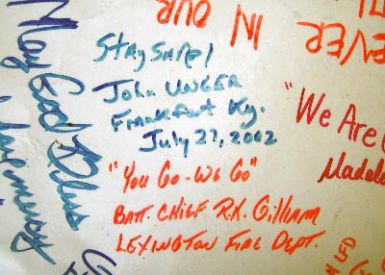 Stay Safe!
John UNGER
Frankfurt Ky.
July 27, 2002
"You Go-We Go"
BATT. CHIEF R.K. Gilliam
LEXINGTON FIRE DEPT.
May God Bless
IN OUR
EVER
"We Are
Madele